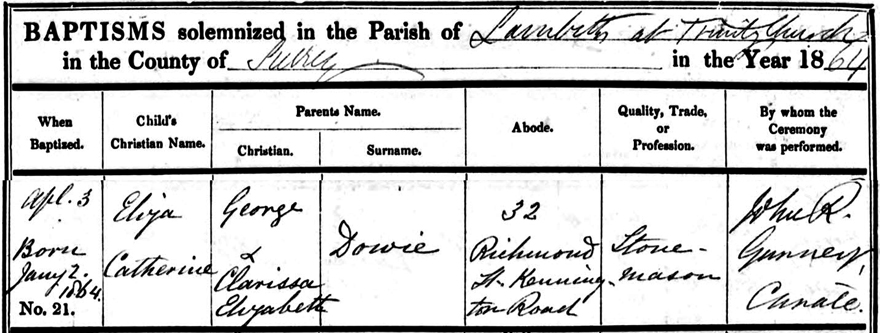 BAPTISMS solemnized in the Parish of Lambeth at Trinity Church
in the County of Surrey in the Year 1864
When Baptized. Child's Christian Name. Parents Name. Abode. Quality, Trade, or Profession. By whom the Ceremony was performed.
Christian. Surname.
Apl. 3 Eliza George 32 John R.
Born Catherine & Dowie Richmond Stone- Gunney,
Jany 2. Clarissa St. Kenning- mason Curate.
1864. Elizabeth ton Road
No. 21.